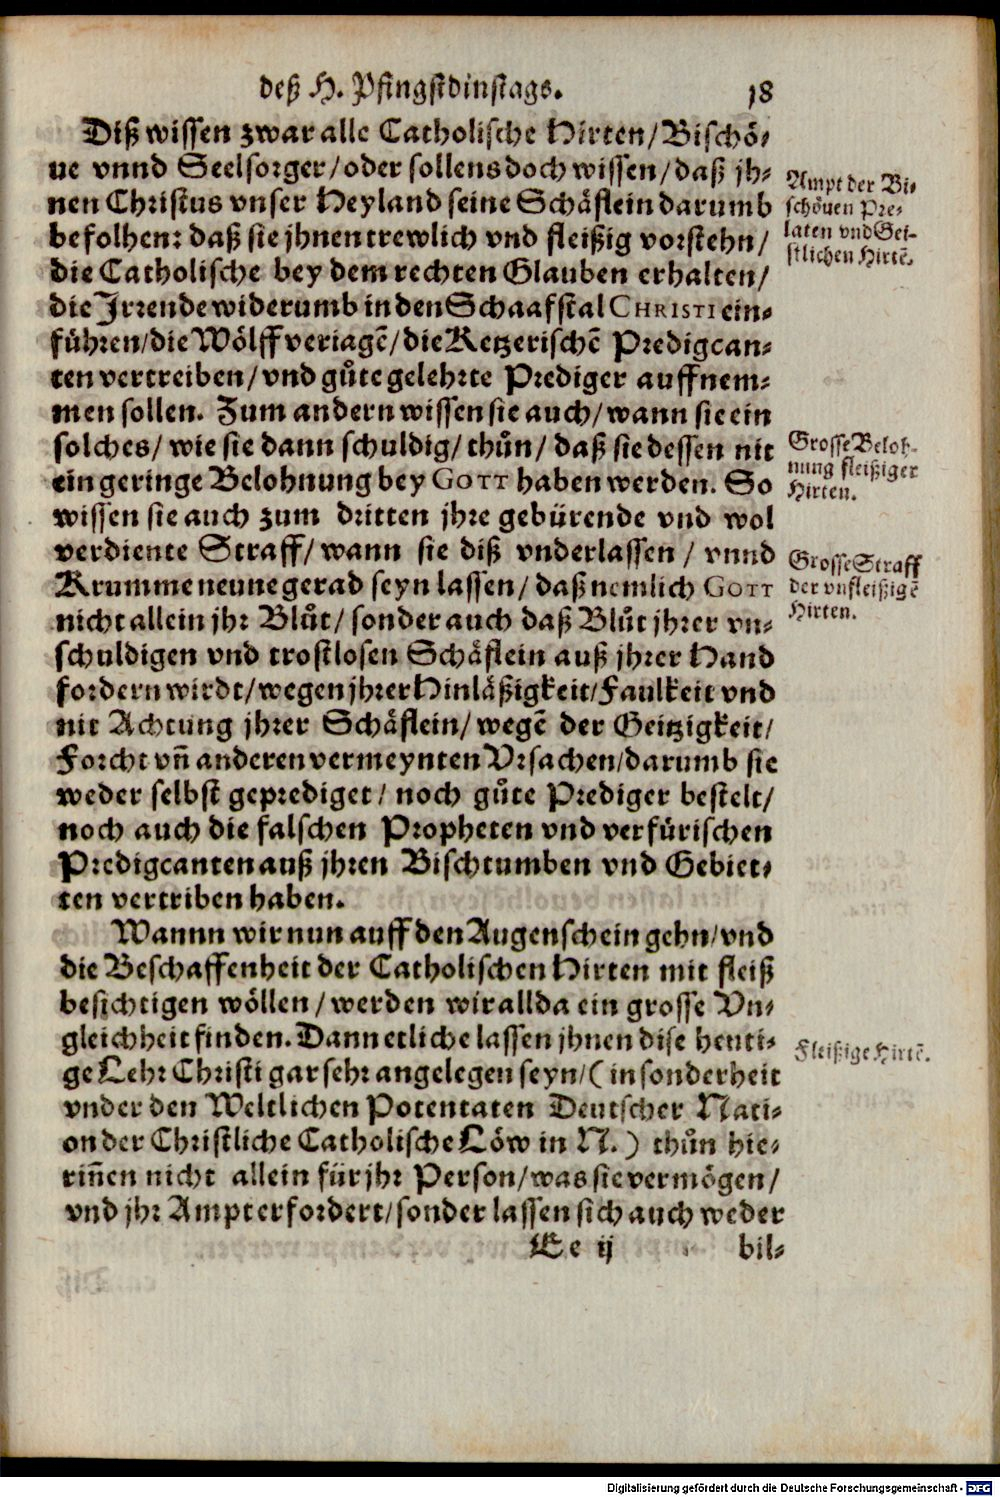 deß H. Pfingstdinstags. 18
Diß wissen zwar alle Catholische Hirten/Bischö-
ue vnnd Seelsorger/oder sollens doch wissen/daß jh-
nen Christus vnser Heyland seine Schäflein darumb
befolhen: daß sie jhnen trewlich vnd fleißig vorstehn/
die Catholische bey dem rechten Glauben erhalten/
die Irrende widerumb in den Schaafstal CHRISTI ein-
führen/die Wölff veriagē/die Ketzerischē Predigcan-
ten vertreiben/vnd gůte gelehrte Prediger auffnem-
men sollen. Zum andern wissen sie auch/wann sie ein
solches/wie sie dann schuldig/thůn/daß sie dessen nit
ein geringe Belohnung bey GOTT haben werden. So
wissen sie auch zum dritten jhre gebürende vnd wol
verdiente Straff/wann sie diß vnderlassen/vnnd
Krumme neune gerad seyn lassen/daß nemlich GOTT
nicht allein jhr Blůt/sonder auch daß Blůt jhrer vn-
schuldigen vnd trostlosen Schäflein auß jhrer Hand
fordern wirdt/wegen jhrer Hinläßigkeit/Faulkeit vnd
nit Achtung jhrer Schäflein/wegē der Geitzigkeit/
Forcht vñ anderen vermeynten Vrsachen/darumb sie
weder selbst geprediget/noch gůte Prediger bestelt/
noch auch die falschen Propheten vnd verfürischen
Predigcanten auß jhren Bischtumben vnd Gebiet-
ten vertriben haben.
Wannn wir nun auff den Augenschein gehn/vnd
die Beschaffenheit der Catholischen Hirten mit fleiß
besichtigen wöllen/werden wir allda ein grosse Vn-
gleichheit finden. Dann etliche lassen jhnen dise heuti-
ge Lehr Christi gar sehr angelegen seyn/(in sonderheit
vnder den Weltlichen Potentaten Deutscher Nati-
on der Christliche Catholische Löw in N.) thůn hie-
riñen nicht allein für jhr Person/was sie vermögen/
vnd jhr Ampt erfordert/sonder lassen sich auch weder
Ee ij bil-
Ampt der Bi-
schöuen Pre-
laten vnd Gei-
stlichen Hirtē.
Grosse Beloh-
nung fleißiger
Hirten.
Grosse Straff
der vnfleißigē
Hirten.
Fleißige Hirtē.
Digitalisierung gefördert durch die Deutsche Forschungsgemeinschaft - DFG